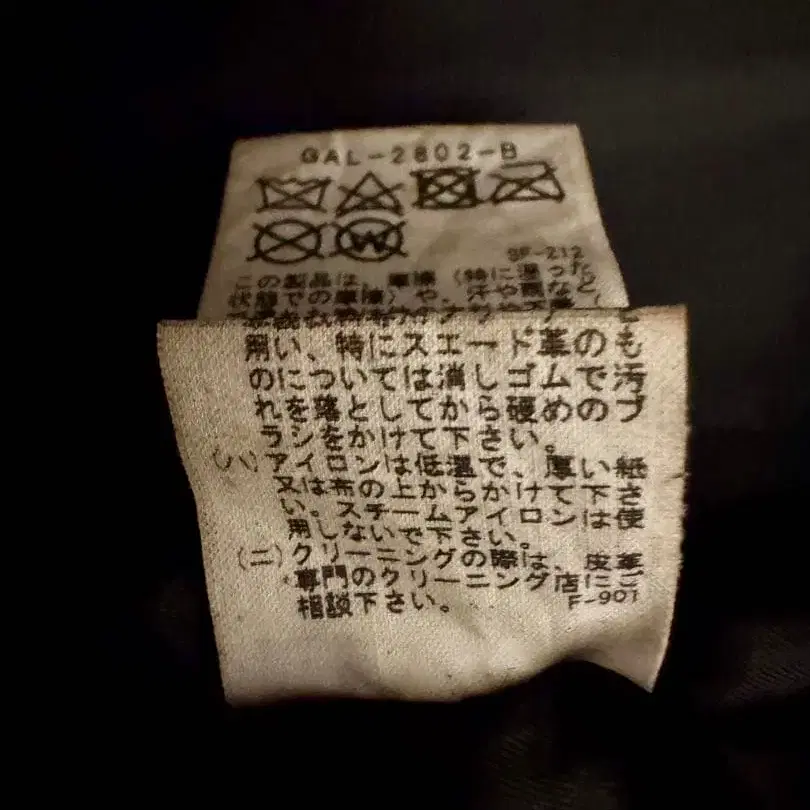 GAL-2802-B
W
SF-212
この製品は、摩擦(特に湿った
状態での摩擦)や、汗や雨など
用い、特にスエード革のも
のについては消しゴムでの汚
れを落としてから硬めのブ
ラシをかけて下さい。
(ハ)アイロンは低温で、厚い紙
又は布の上からかけて下さ
い。スチームアイロンは使
用しないで下さい。
(ニ)クリーニングの際は、皮革
専門のクリーニング店にご
相談下さい。
F-901